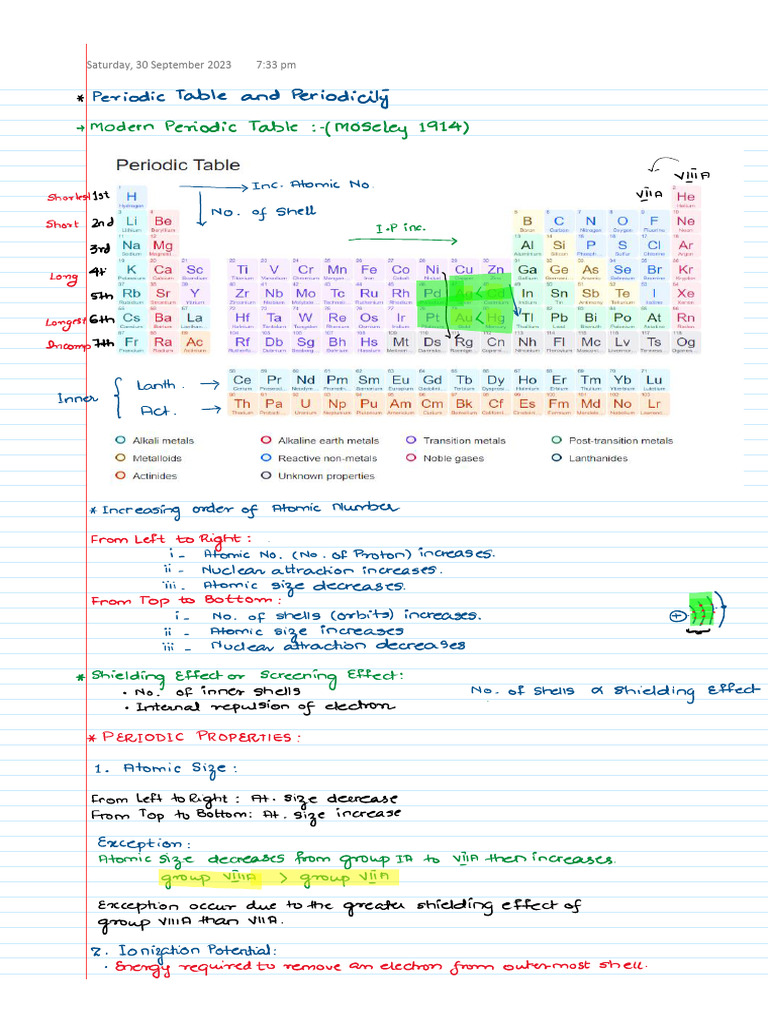 Saturday, 30 September 2023 7:33 pm
* Periodic Table and Periodicity
→ Modern Periodic Table :-(Moseley 1914)
Periodic Table
VIIIA
VIIA
Inc. Atomic No.
No. of Shell
I.P inc.
Shortest 1st H He
Hydrogen Helium
Short 2nd Li Be B C N O F Ne
3rd Na Mg Al Si P S Cl Ar
Long 4t K Ca Sc Ti V Cr Mn Fe Co Ni Cu Zn Ga Ge As Se Br Kr
5th Rb Sr Y Zr Nb Mo Tc Ru Rh Pd Ag < Cd In Sn Sb Te I Xe
Longest 6th Cs Ba La Hf Ta W Re Os Ir Pt Au < Hg Tl Pb Bi Po At Rn
Incomp 7th Fr Ra Ac Rf Db Sg Bh Hs Mt Ds Rg Cn Nh Fl Mc Lv Ts Og
Inner
Lanth. → Ce Pr Nd Pm Sm Eu Gd Tb Dy Ho Er Tm Yb Lu
Act. → Th Pa U Np Pu Am Cm Bk Cf Es Fm Md No Lr
Alkali metals Alkaline earth metals Transition metals Post-transition metals
Metalloids Reactive non-metals Noble gases Lanthanides
Actinides Unknown properties
* Increasing order of Atomic Number
From Left to Right :
i - Atomic No. (No. of Proton) increases.
ii - Nuclear attraction increases.
iii. Atomic size decreases.
From Top to Bottom :
i - No. of shells (orbits) increases.
ii - Atomic size increases
iii - Nuclear attraction decreases
+
* Shielding Effect or Screening Effect:
• No. of inner shells
No. of Shells ∝ Shielding Effect
• Internal repulsion of electron
* PERIODIC PROPERTIES :
1. Atomic Size :
From Left to Right : At. size decrease
From Top to Bottom: At. size increase
Exception :
Atomic size decreases from group IA to VIIA then increases.
group VIIIA > group VIIA
Exception occur due to the greater shielding effect of
group VIIIA than VIIA.
2. Ionization Potential:
• Energy required to remove an electron from outermost shell.